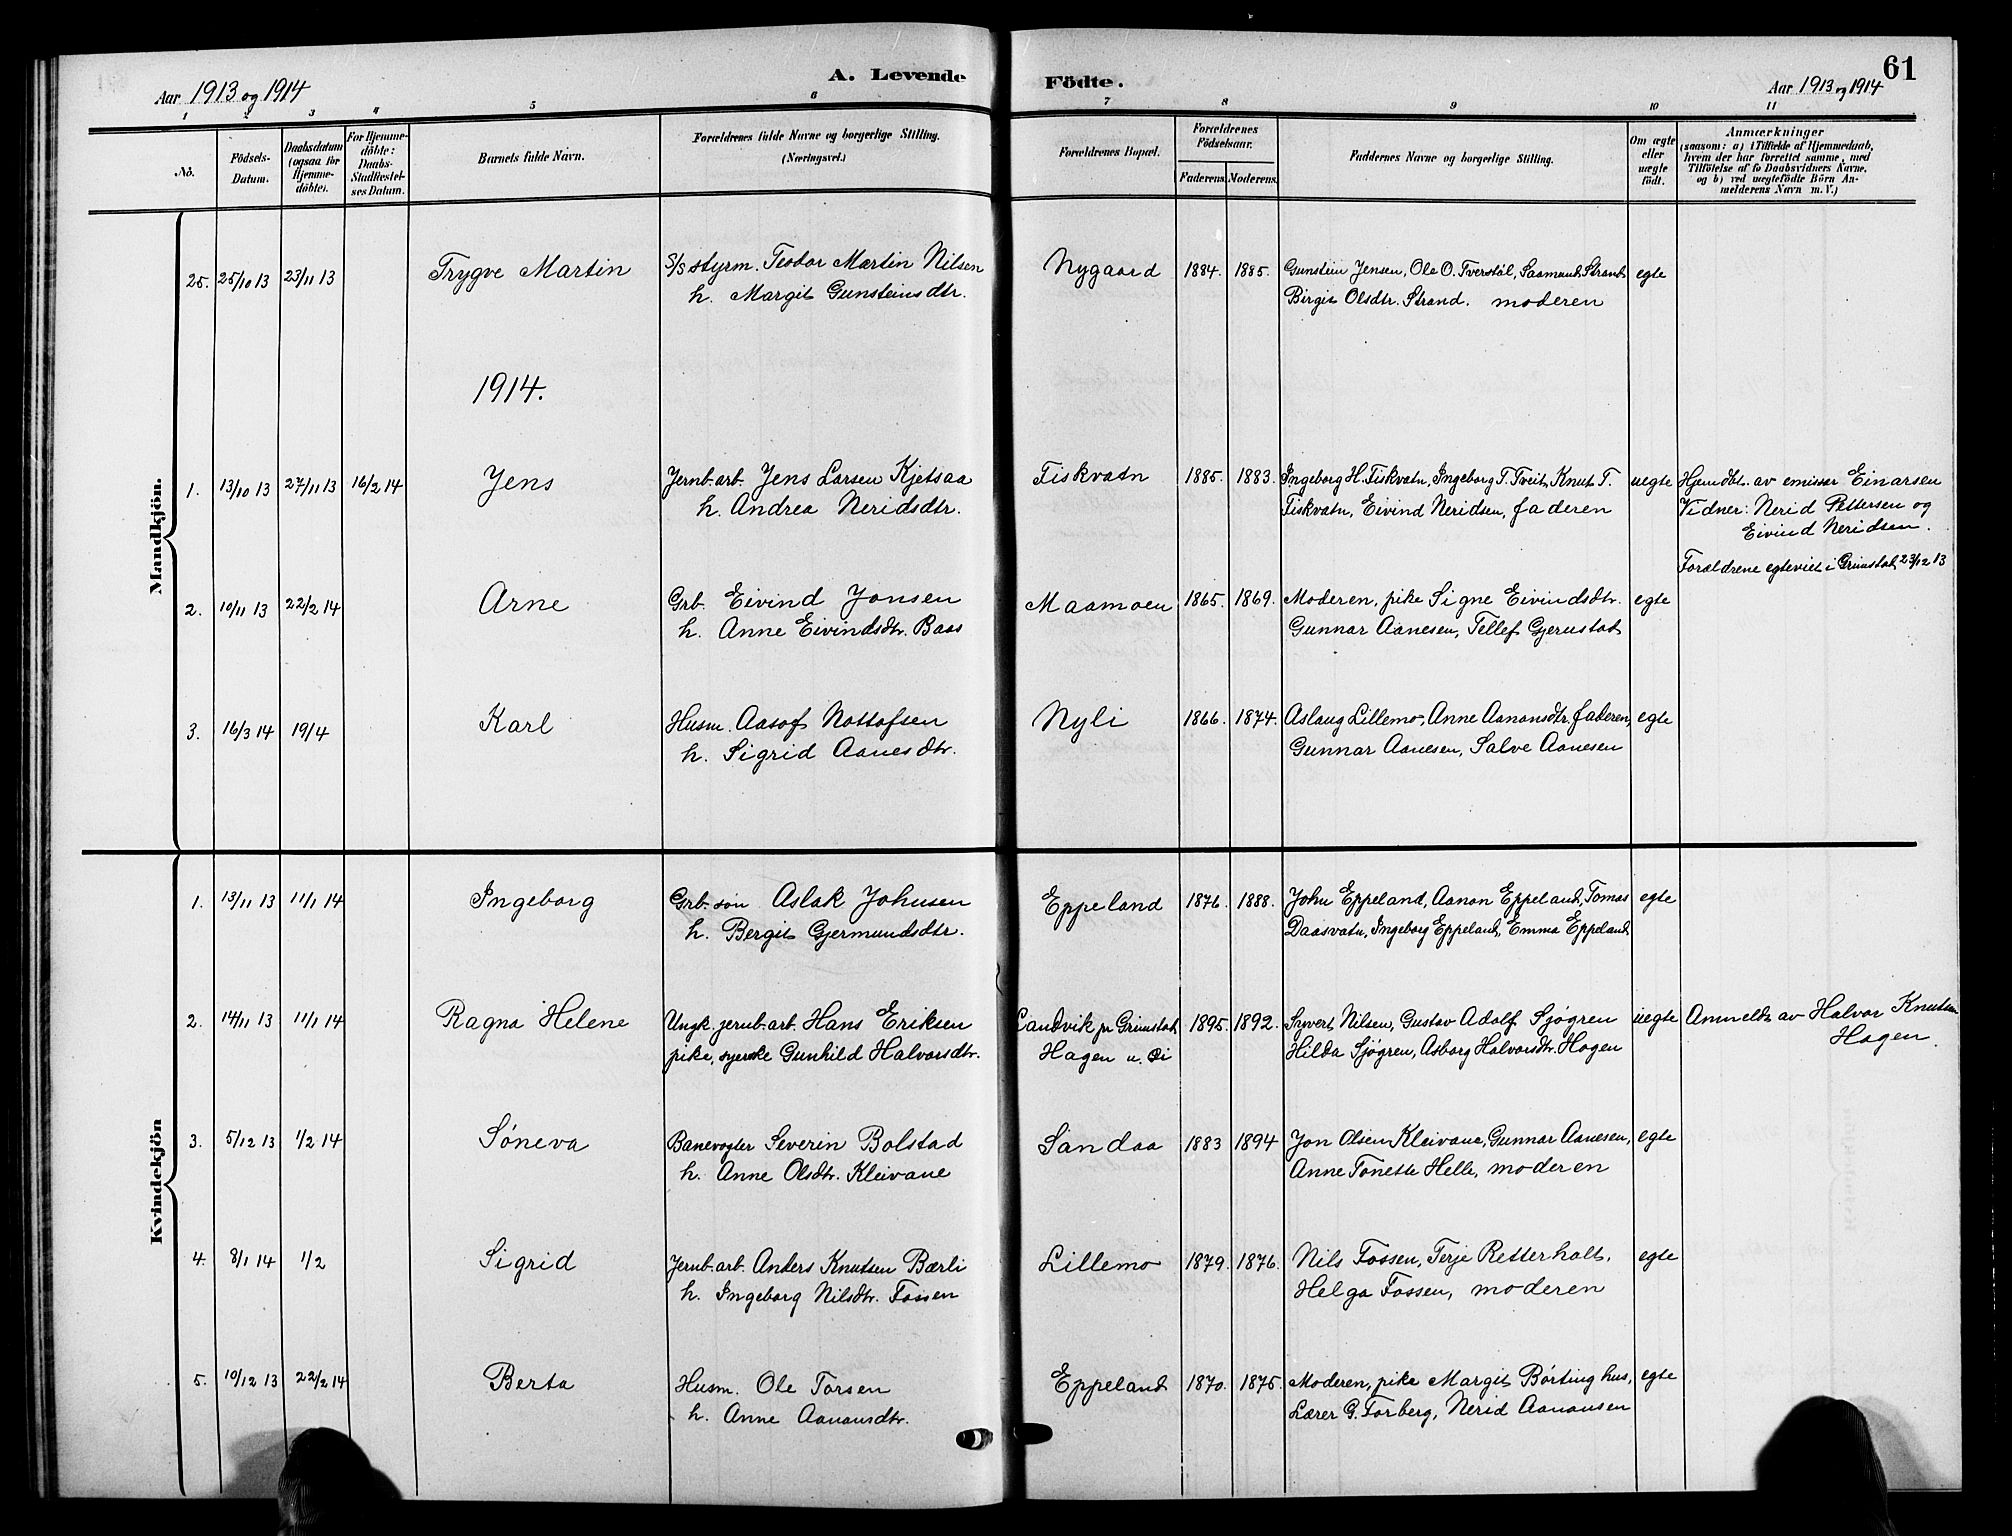 61
A. Levende Födte.
Aar 1913 og 1914
Aar 1913 og 1914
1 2 3 4 5 6 7 8 9 10 11
No.
Födsels-Datum.
Daabsdatum (ogsaa for Hjemme-döbte).
For Hjemme-döbte: Daabs-Stadfæstel-ses Datum.
Barnets fulde Navn.
Forældrenes fulde Navne og borgerlige Stilling.
(Næringsvei.)
Forældrenes Bopæl.
Forældrenes Födselsaar.
Faderens. Moderens.
Faddernes Navne og borgerlige Stilling.
Om ægte eller uægte födt.
Anmærkninger
(saasom: a) i Tilfælde af Hjemmedaab, hvem der har forrettet samme, med Tilföielse af to Daabsvidners Navne, og b) ved uægtefödte Börn An-melderens Navn m. V.)
Mandkjön.
25. 25/10 13 23/11 13 Trygve Martin S/S styrm. Teodor Martin Nilsen Nygaard 1884. 1885. Gunstein Jensen, Ole O. Tverstöl, Saamund Strand egte
h. Margit Gunsteinsdtr. Birgit Olsdtr. Strand. moderen
1914.
1. 13/10 13 27/11 13 16/2 14 Jens Jernb.arb. Jens Larsen Kjetsaa Fiskvatn 1885. 1883. Ingeborg H. Fiskvatn, Ingeborg T. Tveit, Knut T. uegte Hjemdbt. av emissær Einarsen
h. Andrea Neridsdtr. Fiskvatn, Eivind Neridsen, faderen Vidner: Nerid Pettersen og
Eivind Neridsen.
Forældrene egteviet i Grimstad 23/12 13
2. 10/11 13 22/2 14 Arne Grb. Eivind Jonsen Maamoen 1865. 1869. Moderen, pike Signe Eivindsdtr. egte
h. Anne Eivindsdtr. Baas Gunnar Aanesen, Tellef Gjerustad
3. 16/3 14 19/4 Karl Husm. Aasof Nottofsen Nyli 1866. 1874. Aslaug Lillemo, Anne Aanonsdtr. faderen, egte
h. Sigrid Aanesdtr. Gunnar Aanesen, Salve Aanesen
Kvindekjön
1. 13/11 13 11/1 14 Ingeborg Grb.søn Aslak Johnsen Eppeland 1876. 1888. John Eppeland, Aanon Eppeland, Tomas egte
h. Bergit Gjermundsdtr. Daasvatn, Ingeborg Eppeland, Emma Eppeland
2. 14/11 13 11/1 14 Ragna Helene Ungk. jernb.arb. Hans Eriksen Landvik pr Grimstad 1895. 1892. Syvert Nilsen, Gustav Adolf Sjøgren uegte Anmeldt av Halvor Knutsen
pike, syerske Gunhild Halvorsdtr. Hagen u. Ei Hilda Sjøgren, Asborg Halvorsdtr. Hagen Hagen.
3. 5/12 13 1/2 14 Søneva Banevogter Severin Bolstad Sandaa 1883 1894 Jon Olsen Kleivane, Gunnar Aanesen, egte
h. Anne Olsdtr. Kleivane Anne Tonette Helle, moderen
4. 8/1 14 1/2 Sigrid Jernb.arb. Anders Knutsen Bærli Lillemo 1879. 1876. Nils Fossen, Terje Retterholt, egte
h. Ingeborg Nilsdtr. Fossen Helga Fossen, moderen
5. 10/12 13 22/2 14 Berta Husm. Ole Torsen Eppeland 1870. 1875. Moderen, pike Margit Börtinghus, egte
h. Anne Aanonsdtr. Lærer G. Torberg, Nerid Aanonsen